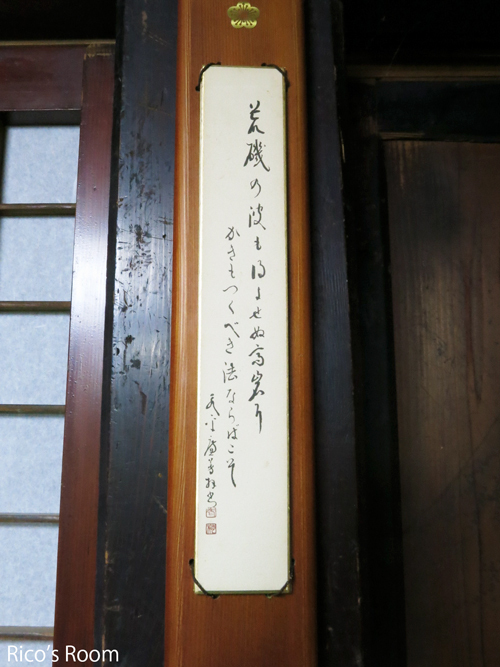 荒磯の波も得よせぬ高岩に
かきもつくべき法ならばこそ
Rico's Room